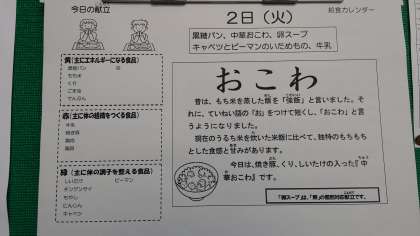 今日の献立
2日(火)
給食カレンダー
黒糖パン、中華おこわ、卵スープ
キャベツとピーマンのいためもの、牛乳
黄(主にエネルギーになる食品)
黒糖パン
もち米
くり
ごま油
でんぷん
赤(主に体の組織をつくる食品)
牛乳
焼き豚
鶏肉
鶏卵
緑(主に体の調子を整える食品)
しいたけ ピーマン
チンゲンサイ
もやし
にんじん
キャベツ
おこわ
昔は、もち米を蒸した飯を「強飯」と言いました。そ
れに、ていねい語の「お」をつけて短くし、「おこわ」と言
うようになりました。
現在のうるち米を炊いた米飯に比べて、独特のもちもち
とした食感と甘みがあります。
今日は、焼き豚、くり、しいたけの入った『中
華おこわ』です。
「卵スープ」は、「卵」の個別対応献立です。